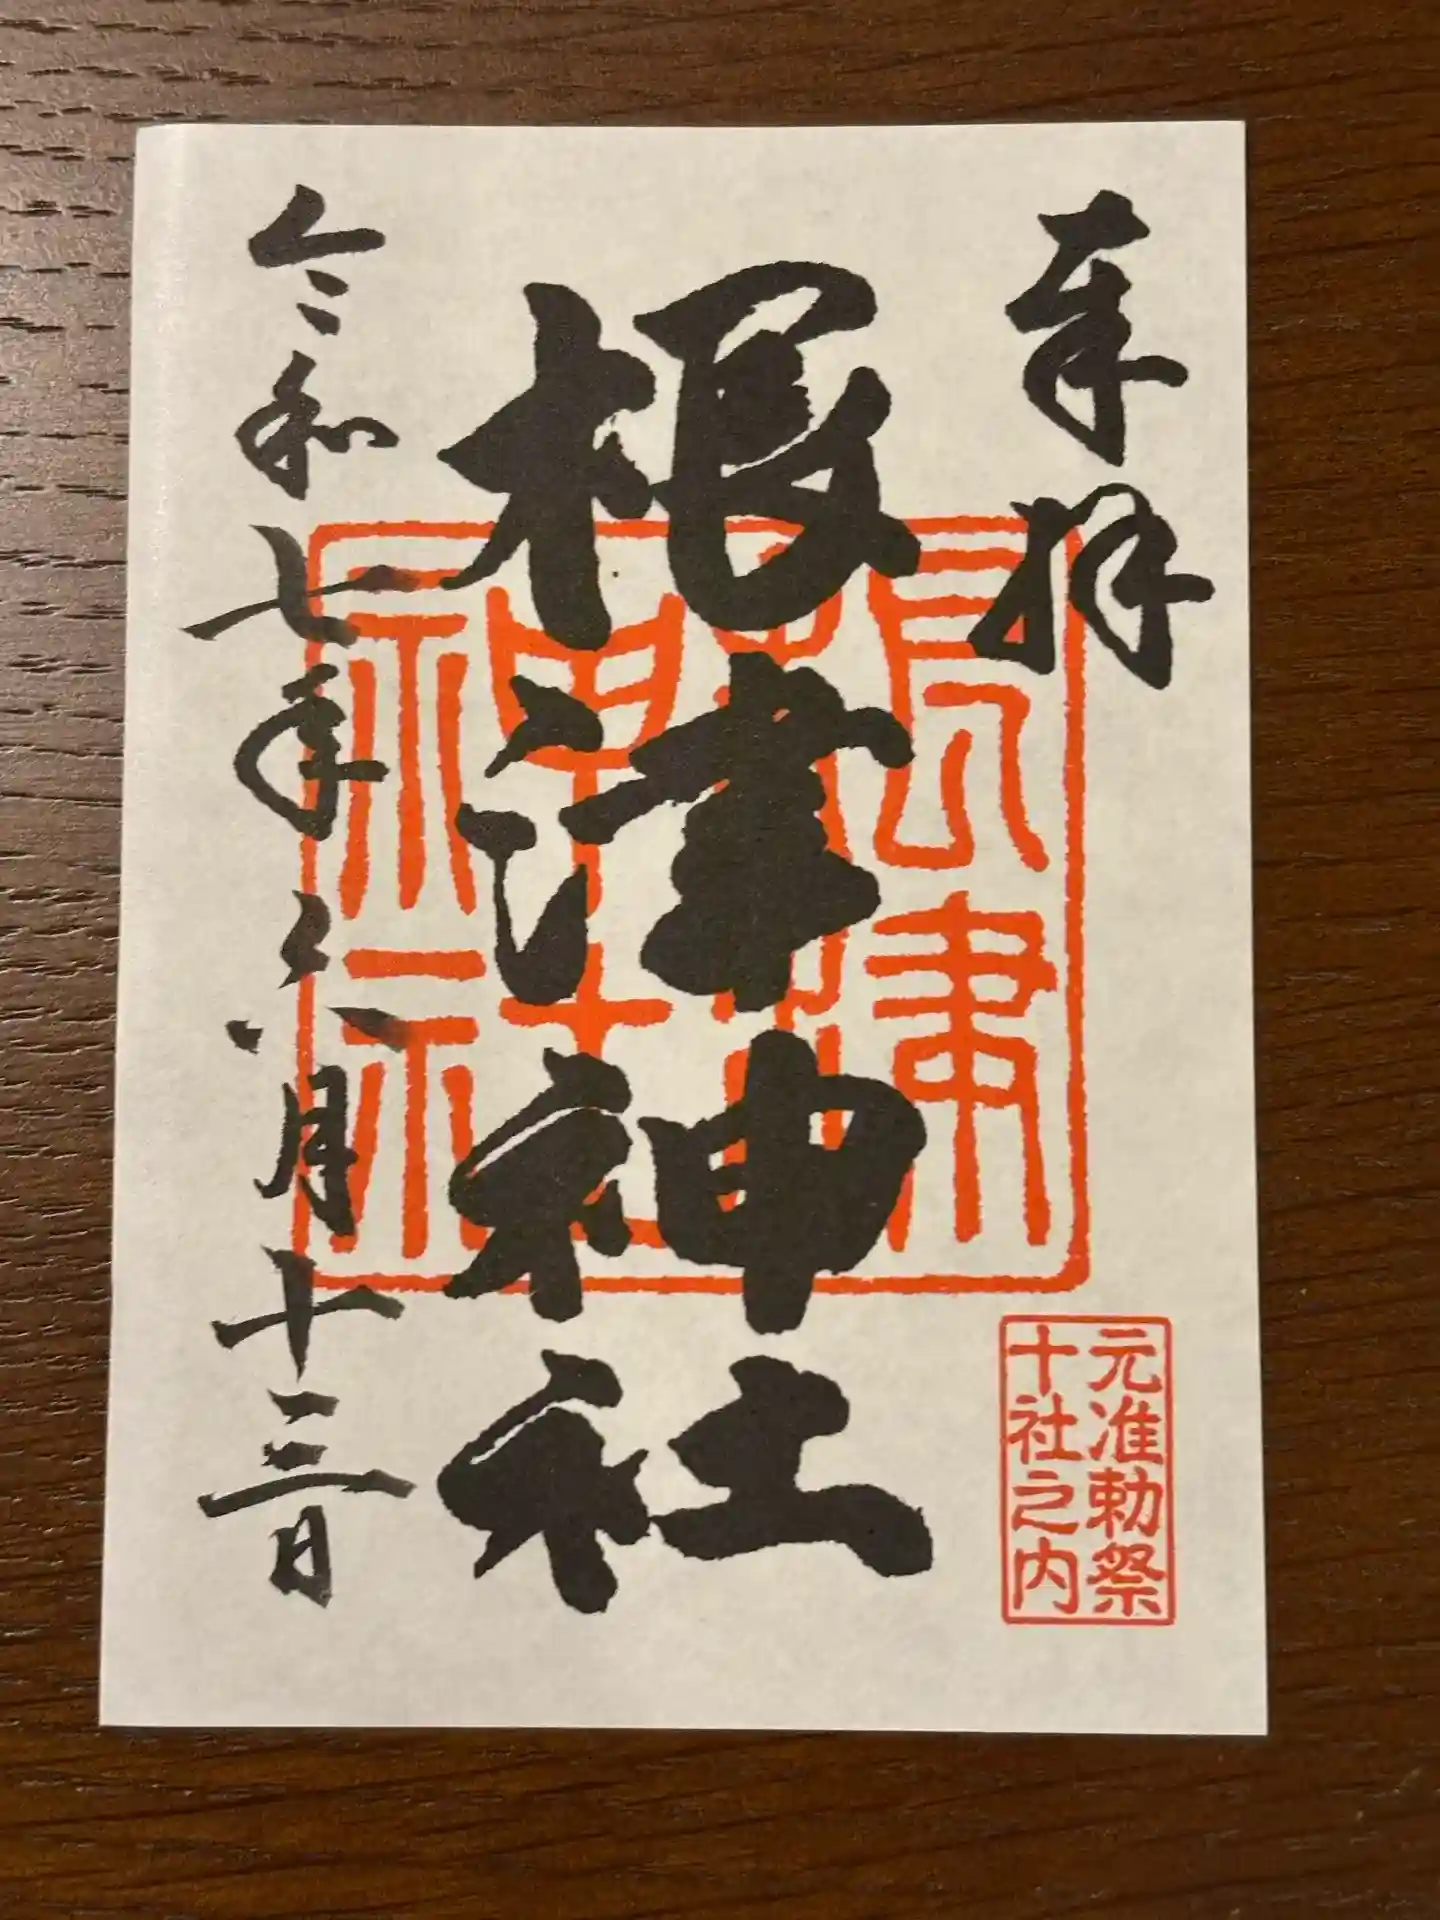 奉拝
根津神社
根津
神社
令和七年六月十三日
元准勅祭
十社之内